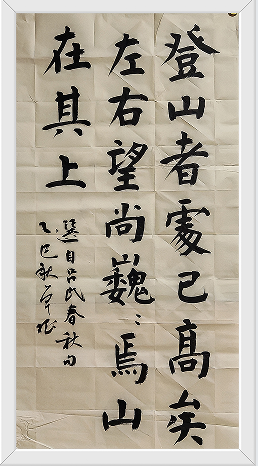 登山者處已高矣
左右望尚巍〻焉山
在其上
選自吕氏春秋句
乙巳秋